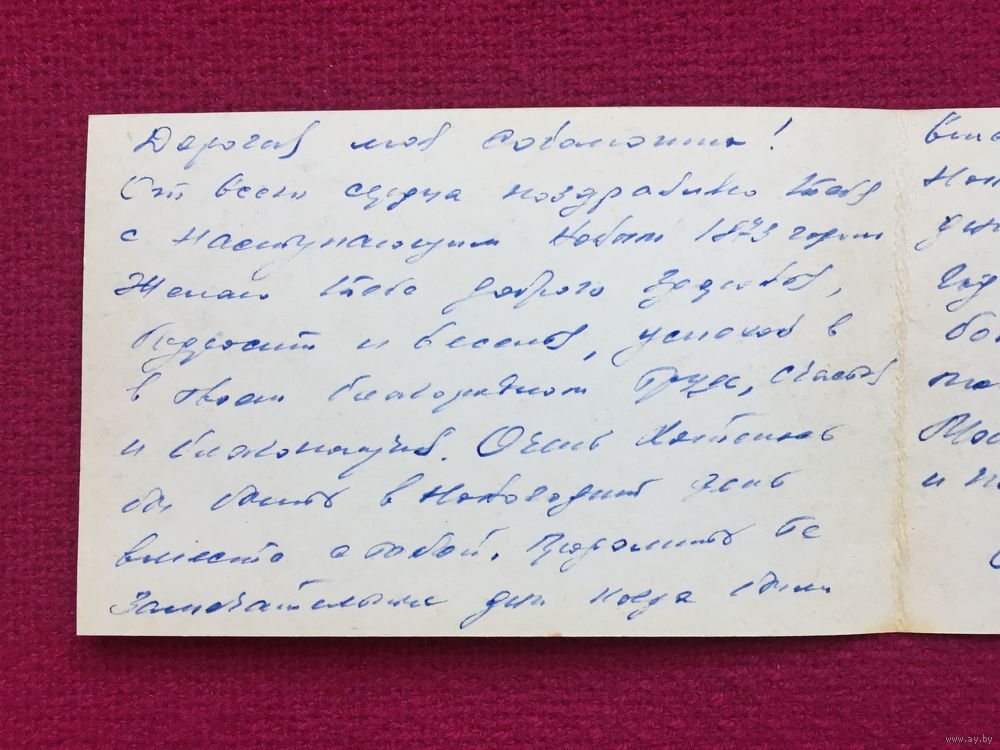 Дорогая моя
От всего сердца поздравляю тебя
с наступающим Новым 1973 годом
Желаю тебе доброго здоровья,
бодрости и веселья, успехов в
в твоем благородном труде, счастья
и благополучия. Очень хотелось
бы быть в Новогодний день
вместе с тобой. Продолжить те
замечательные дни когда были
www.ay.by